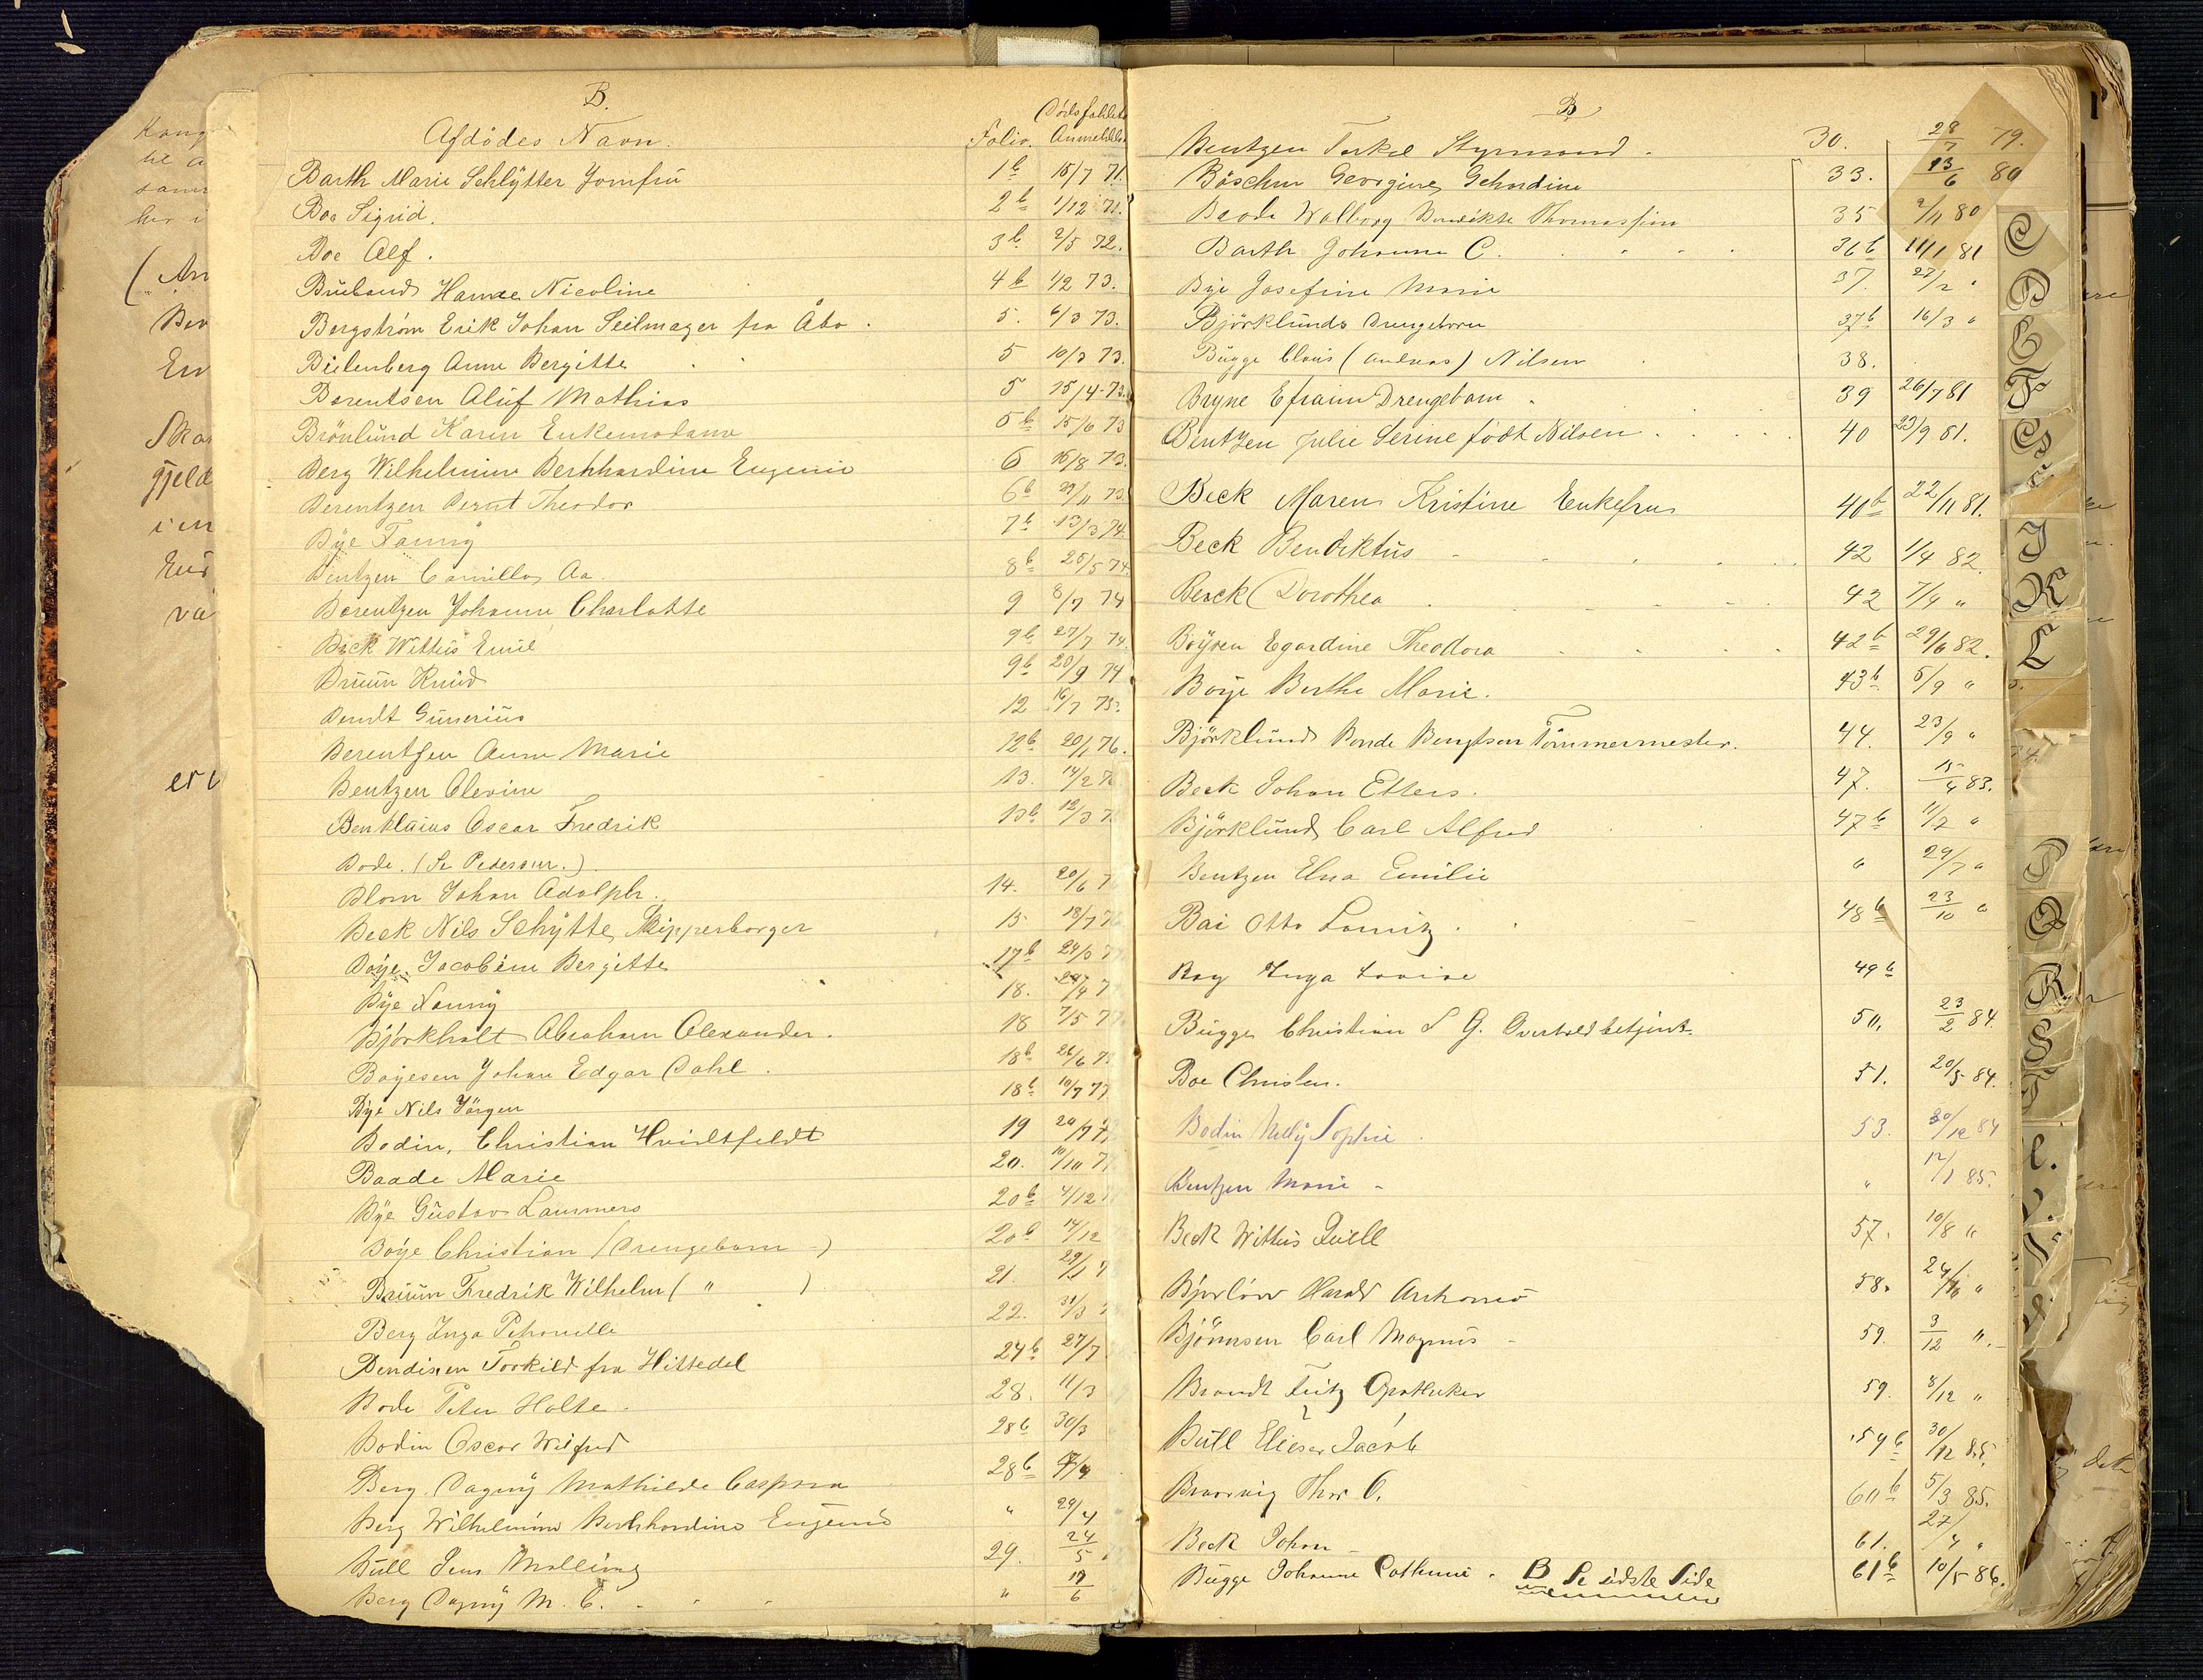 B.
Afdödes Navn.
Folio.
Dödsfaldets Anmeldelse
Barth Marie Schlÿtter Jomfru 1b 15/7 71.
Boe Sigrid. 2b 1/12 71.
Boe Alf. 3b 2/5 72.
Bueland Hanne Nicoline 4b 1/2 73.
Bergström Erik Johan Seilmager fra Åbo. 5. 6/3 73.
Bielenberg Anne Bergitte 5 10/3 73.
Berentsen Aluf Mathias 5 15/4 73.
Brönlund Karen Enkemadame 5b 15/6 73
Berg Wilhelmine Bernhardine Eugenie 6 15/8 73.
Berentzen Bernt Theodor 6b 29/11 73.
Bÿe Fanny 7b 13/3 74.
Bentzen Camilla Aa. 8b 25/5 74.
Berentzen Johanne Charlotte 9 8/7 74
Beck Wittus Emil 9b 27/7 74.
Bruun Knud 9b 20/9 74
Bendt Gunerius 12 16/7 75.
Berentsen Anne Marie 12b 20/1 76.
Bentzen Olevine 13. 14/2 7
Oscar Fredrik 13b 12/3 7
Bode. (Se Pedersen.)
Blom Johan Adolph. 14. 20/6 7
Beck Nils Schÿtte Skipperborger 15 18/7 7
Böÿe Jacobine Bergitte 17b 24/3 7
Bÿe Nanny 18. 7
Björkholt Abraham Alexander. 18 7/5 7
Boÿesen Johan Edgar Dahl. 18b 26/6 7
Bÿe Nils Jörgen 18b 10/7 77
Bodin, Christian Hvidtfeldt 19 20/7 77
Baade Marie 20. 10/10 7
Bÿe Gustav Lammers 20b 4/12
Böÿe Christian (Drengebarn) 20b 14/12
Bruun Fredrik Wilhelm ( " ) 21.
Berg Inga Petronelle 22. 31/3
Bendixen Torkild fra Hittedal 24b 27/7
Bode Peter Holte. 28. 11/3
Bodin Oscar Wilfred 28b 30/3
Berg Dagnÿ Mathilde Caspara 28b
Berg Wilhelmine Bernhardine Eugenie " 29/4
Bull Jens Malling 29. 24/5
Berg Dagnÿ M. C. " 17/6
B
Bentzen Terkel Styrmand. 30. 28/7 79.
Böschen Georgine Gehardine 33. 13/6 80
Baade Walborg Benedikte Thomassine 35 2/11 80
Barth Johanne C. 36b 11/1 81
Bÿe Josefine Marie 37. 27/2 "
Björklunds Drengebarn 37b 16/3 "
Bugge Claus (Andreas) Nilsen 38.
Bryne Efraim Drengebarn. 39 26/7 81
Bentzen Julie Serine födt Nilsen. 40 23/9 81.
Beck Maren Kristine Enkefru 40b 22/11 81.
Beck Bendiktus 42 1/4 82.
Beack Dorothea 42 7/4 "
Böÿsen Egardine Theodora 42b 29/6 82.
Boÿe Berthe Marie. 43b 5/9 "
Björklund Bonde Bengtsen Tömmermester. 44. 23/9 "
Beck Johan Ellers. 47. 15/4 83.
Björklund Carl Alfred 47b 11/7 "
Bentzen Elna Emilie " 29/7 "
Bai Otto Lornitz. 48b 23/10 "
Boy Inga Lovise 49b
Bugge Christian S G. Overtoldbetjent. 50. 23/2 84.
Boe Christen. 51. 20/5 84.
Bodin Nelly Sophie 53. 30/12 84
Bentzen Marie " 12/1 85.
Beck Wittus Juell 57. 10/8 "
Harald Antonio 58. "
Björnsen Carl Magnus 59. 3/12 "
Brandt Fritz Apotheker 59. 8/12 "
Bull Elieser Jacob 59b 30/12 85.
Braarvig Thor C. 60b 5/3 85.
Beck Johan 61. 27/4 "
Bugge Johanne Cathrine. B Se sidste Side 61b 10/5 86.
C
D
E
F
G
I
K
L
P
Q
R
S
T